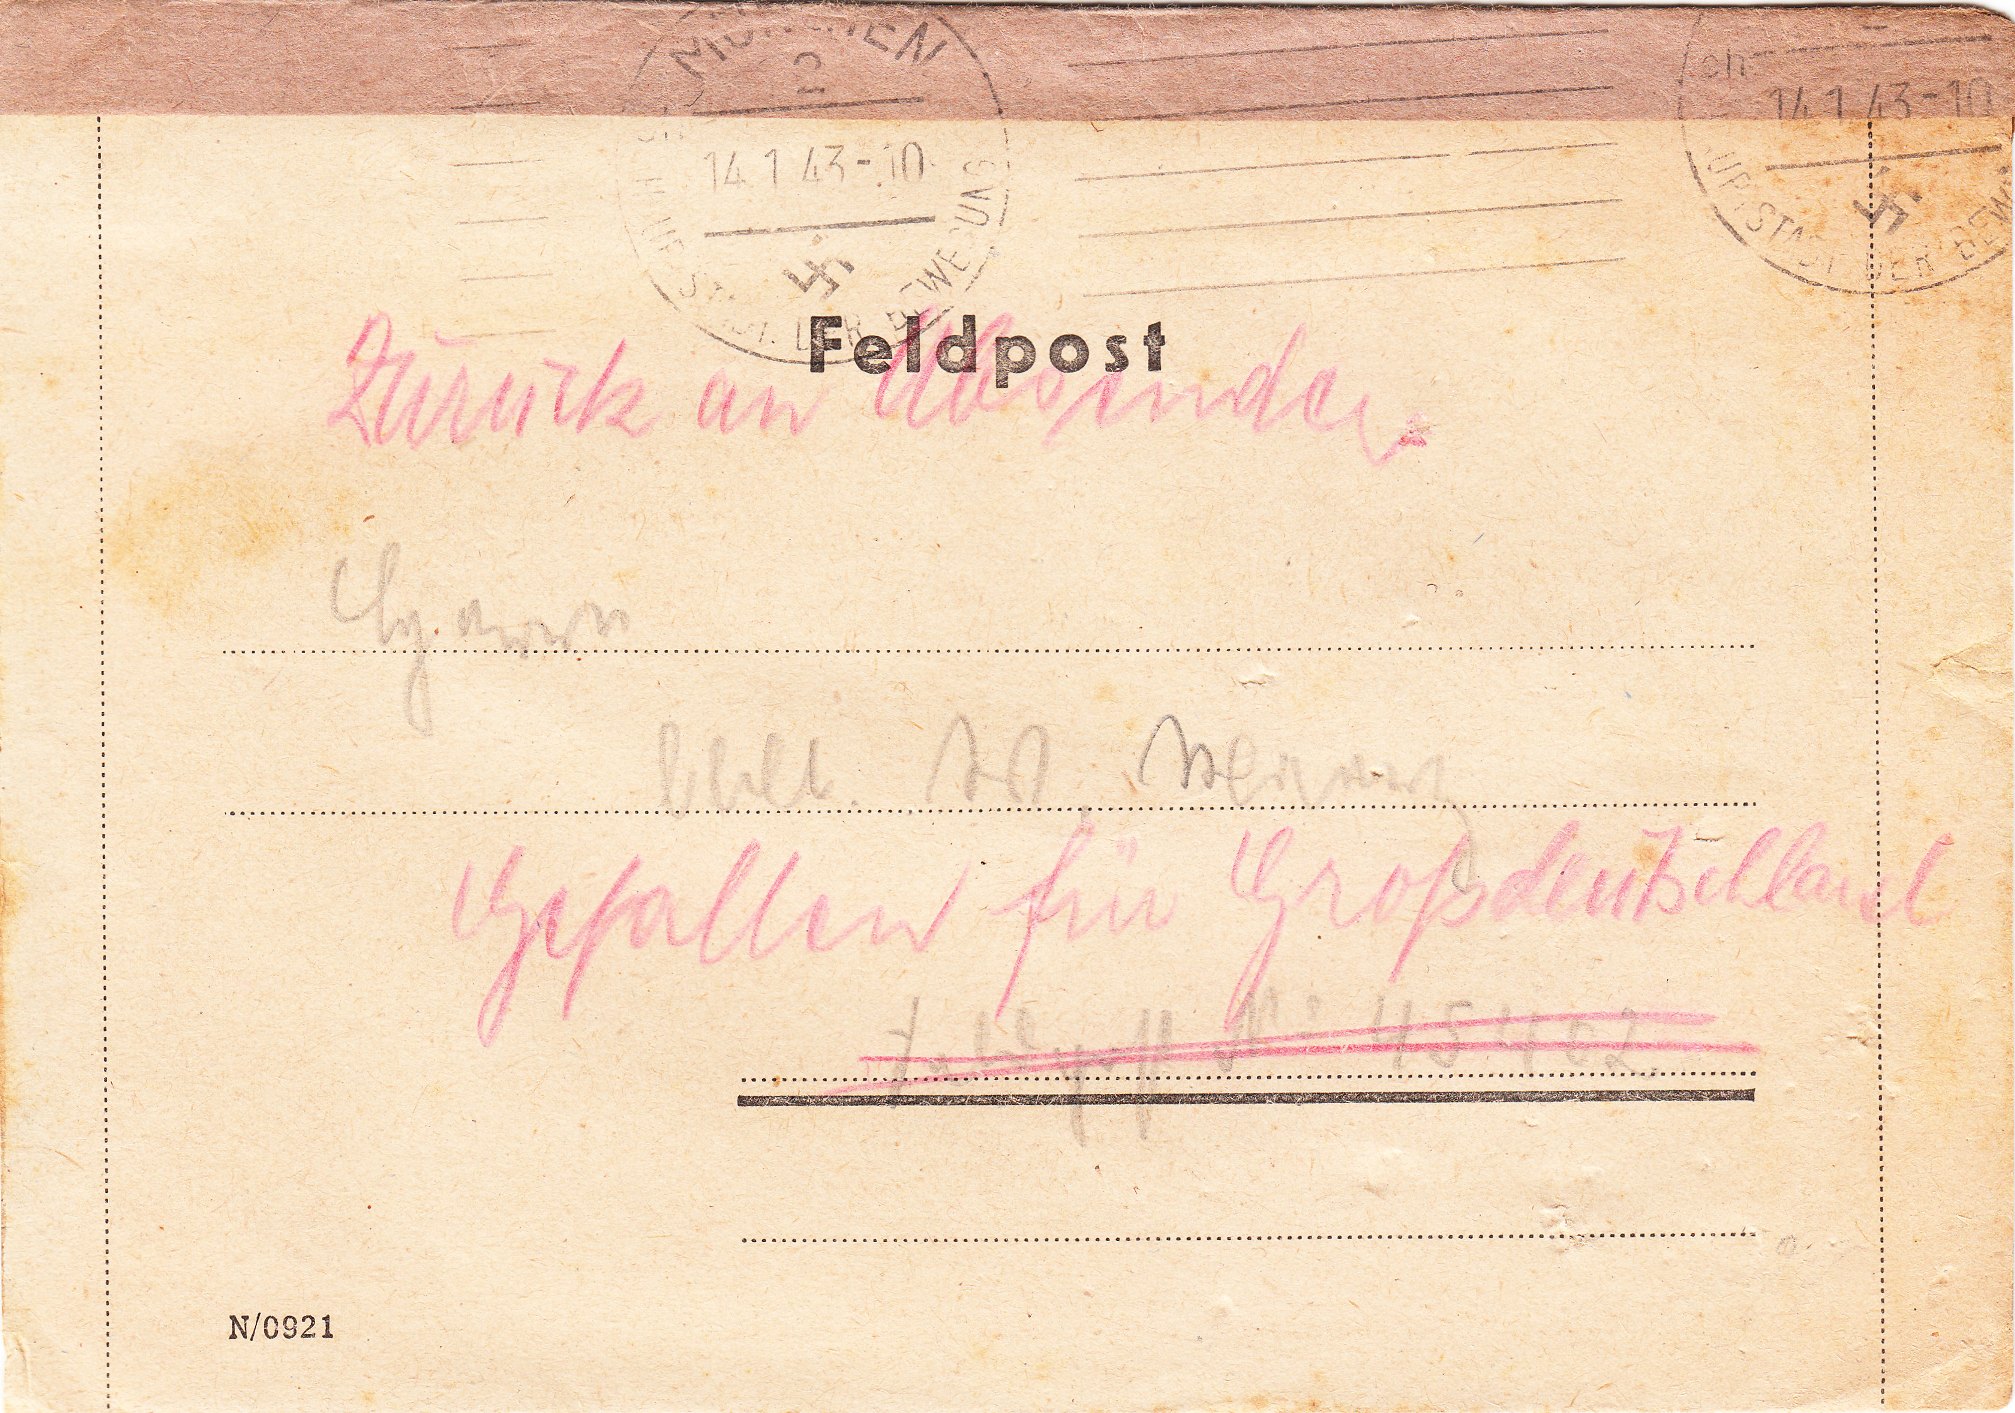 MÜNCHEN
2
14.1.43-10
HAUPTSTADT DER BEWEGUNG
14.1.43-10
HAUPTSTADT DER BEWEGUNG
Feldpost
Zurück an Absender.
Gefallen für Großdeutschland
Feldpost Nr 45402
N/0921